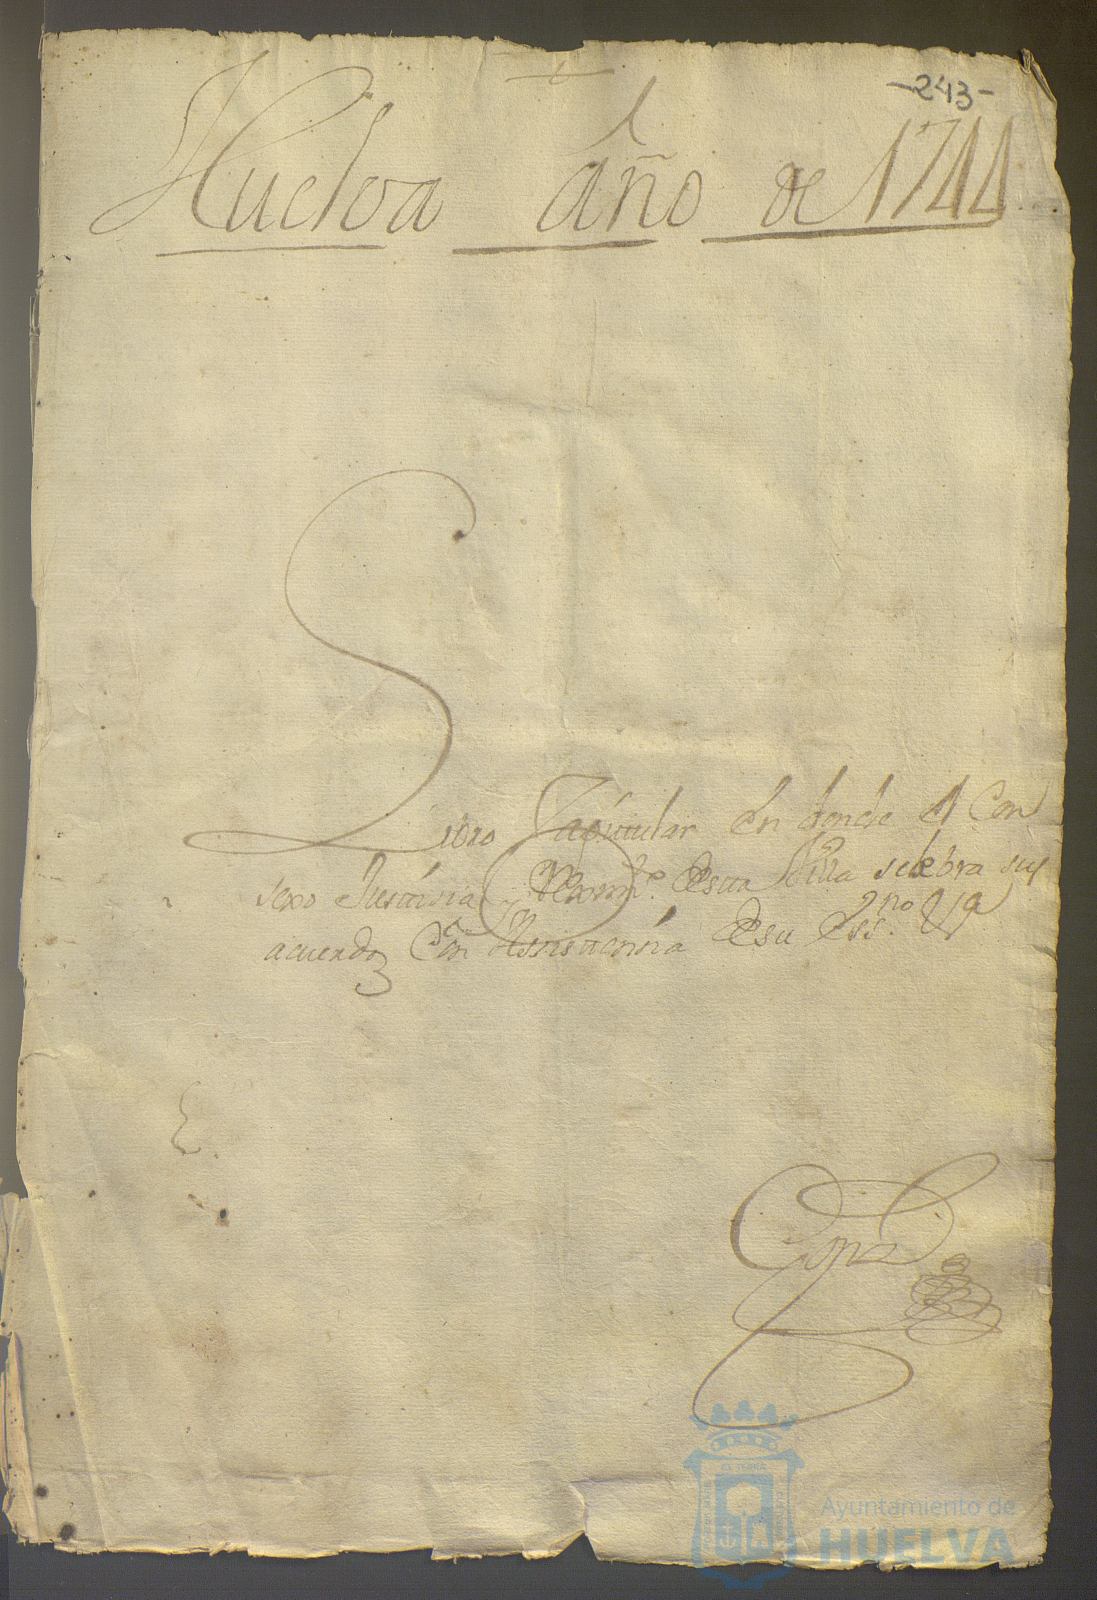 -243-
Huelva año de 1744
Libro Capitular en donde el Con
sexo Justisia y Rexim.to desta Villa selebra sus
acuerdos Con Asistensia de su Ess.no
Ayuntamiento de
HUELVA